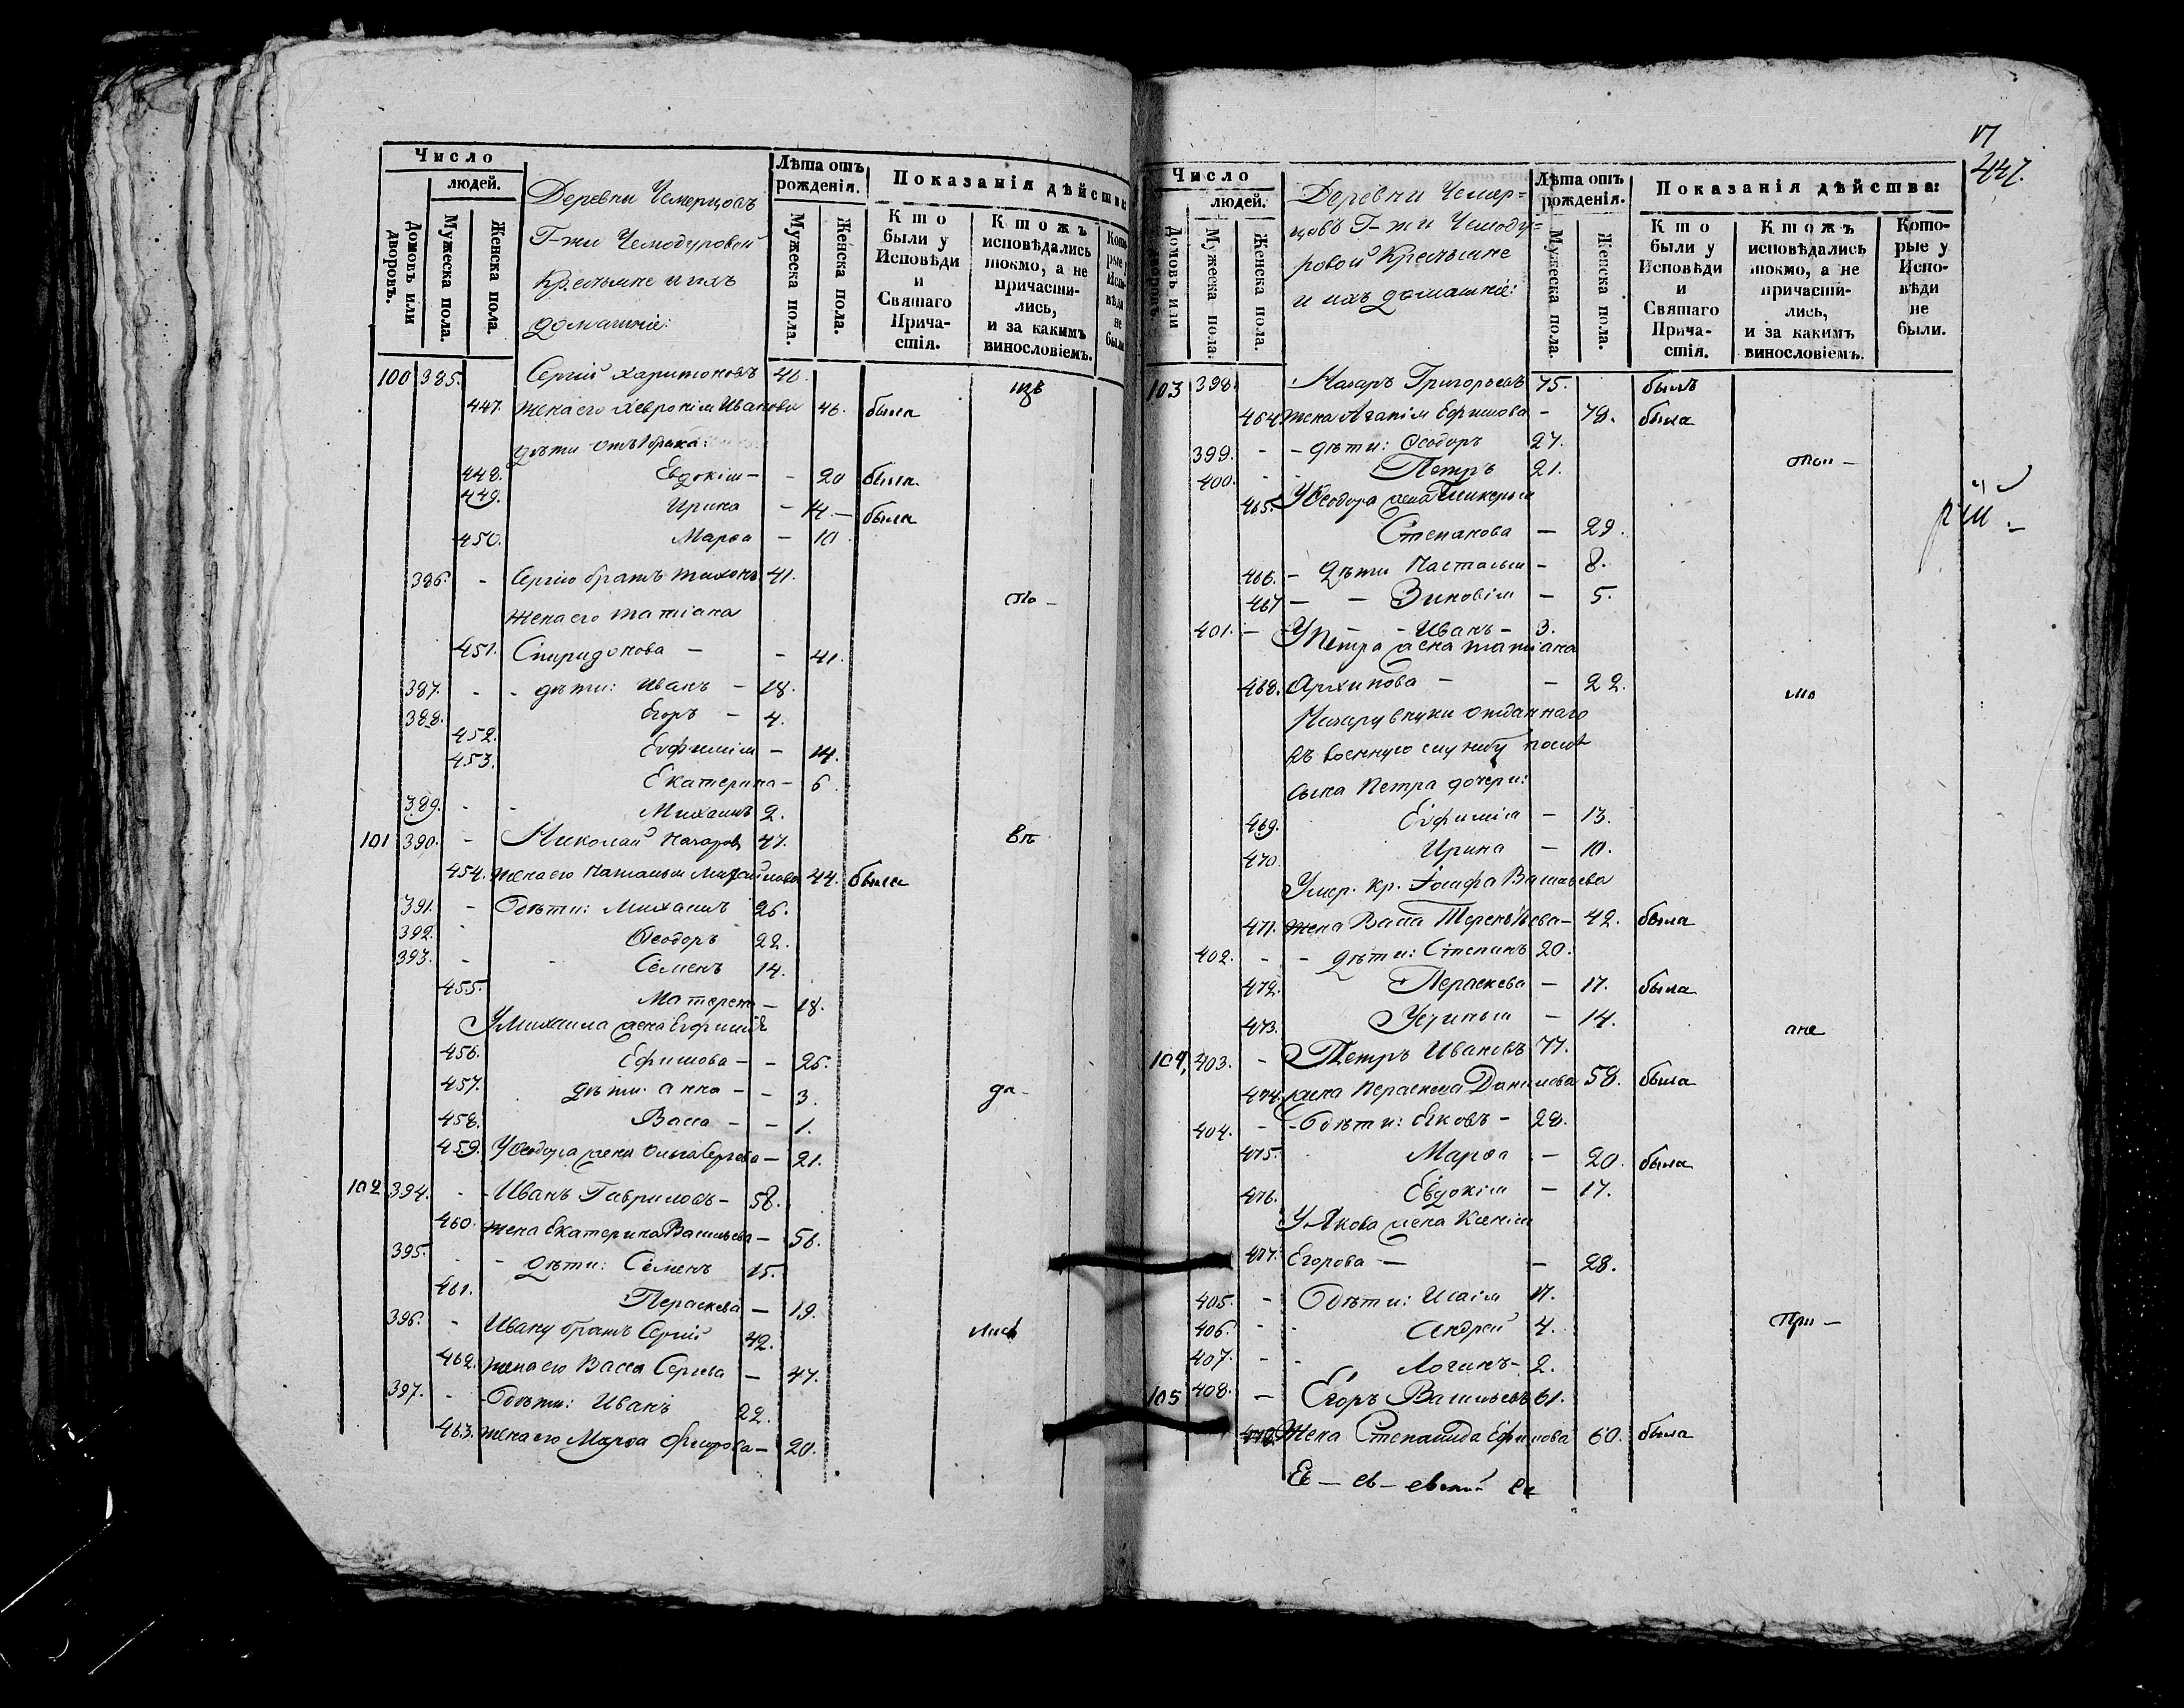 Число
людей.
Домовъ или дворовъ.
Мужеска пола.
Женска пола.
Деревни Чемерцовъ
Г-жи Чемодуровой
Крестьяне и ихъ
домашніе:
Лѣта отъ рожденія.
Мужеска пола.
Женска пола.
Показанія дѣйства
Кто были у Исповѣди и Святаго Причастія.
Ктожъ исповѣдались токмо, а не причастились, и за какимъ винословіемъ.
100 385. Сергій Харитоновъ 46.
447. жена его Хеврокія Иванова 46. была
дѣти отъ 1 брака:
448. Евдокія - - 20 была
449. Ирина - 14 - была
450. Марѳа - 10
386. - Сергію братъ Тихонъ 41.
жена его Татіана
451. Спиридонова - - 41.
387. - - дѣти: Иванъ - 18.
388. Егоръ - 4.
452. Евфимія - 14.
453. Екатерина - 6
389. - - Михаилъ 2.
101 390. - Николай Назаровъ 47.
454. жена его Наталья Михайлова 44. была
391. - Дѣти: Михаилъ 26.
392. - Ѳеодоръ 22.
393. - - Семенъ 14.
455. Матерена - 18.
У Михаила жена Евфимія
456. Ефимова - - 26.
457. дѣти: Анна - - 3.
458. Васса - - 1.
459. У Ѳеодора жена Ольга Сергѣева - 21.
102 394. - - Иванъ Гавриловъ - 58.
460. жена Екатерина Васильева - 56.
395. - - дѣти: Семенъ 15.
461. Пераскева - 19.
396. - Ивану братъ Сергій 42.
462. жена его Васса Сергѣева - 47.
397. - - Дѣти: Иванъ 22.
463. жена его Марѳа - 20.
вѣ
да -
лись
17
447.
Число
людей.
Домовъ или дворовъ.
Мужеска пола.
Женска пола.
Деревни Чемер=
цовъ Г-жи Чемоду=
ровой Крестьяне
и ихъ домашніе:
Лѣта отъ рожденія.
Мужеска пола.
Женска пола.
Показанія дѣйства:
Кто были у Исповѣди и Святаго Причастія.
Ктожъ исповѣдались токмо, а не причастились, и за какимъ винословіемъ.
Которые у Исповѣди не были.
103 398. Назаръ Григорьевъ 75. былъ
464 жена Агапія Ефимова - 78. была
399. - - дѣти: Ѳеодоръ 27.
400. - Петръ 21.
465. У Ѳеодора жена Гликерья
Степанова - 29.
466. - дѣти Настасья - 8.
467 - - Зиновія - 5.
401. - - Иванъ - 3.
У Петра жена Татіана
468. Архипова - - 22.
Назару внуки отданнаго
въ военную службу
сына Петра дочери:
469. Евфимія - 13.
470. Ирина - 10.
Умер. кр. Іосифа Васильева
471. жена Васса Терентьева - 42. была
402. - - дѣти: Степанъ 20.
472. Пераскева - 17. была
473. Устинья - 14.
104, 403. - Петръ Ивановъ 77.
474. жена Пераскева Данилова 58. была
404. - - Дѣти: Яковъ - 28.
475. Марѳа - 20. была
476. Евдокія - 17.
У Якова жена Ксенія
477. Егорова - - 28.
405. - Дѣти: Исаія 17.
406. - - Андрей 4.
407. - - Логинъ - 2.
105 408. - Егоръ Васильевъ 61.
478. Жена Степанида Ефимова 60. была
то
ане
при -